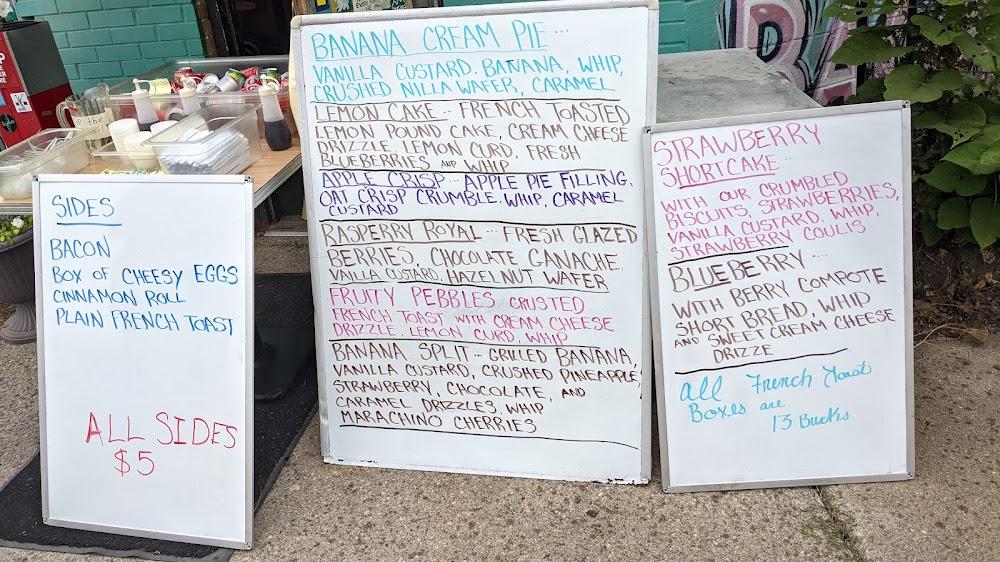 SIDES
BACON
BOX OF CHEESY EGGS
CINNAMON ROLL
PLAIN FRENCH TOAST
ALL SIDES
$5
BANANA CREAM PIE...
VANILLA CUSTARD. BANANA, WHIP,
CRUSHED NILLA WAFER, CARAMEL
LEMON CAKE... FRENCH TOASTED
LEMON POUND CAKE, CREAM CHEESE
DRIZZLE, LEMON CURD, FRESH
BLUEBERRIES AND WHIP
APPLE CRISP... APPLE PIE FILLING,
OAT CRISP CRUMBLE, WHIP, CARAMEL
CUSTARD
RASPERRY ROYAL... FRESH GLAZED
BERRIES, CHOCOLATE GANACHE,
VAILLA CUSTARD, HAZELNUT WAFER
FRUITY PEBBLES CRUSTED
FRENCH TOAST WITH CREAM CHEESE
DRIZZLE, LEMON CURD, WHIP
BANANA SPLIT... GRILLED BANANA,
VANILLA CUSTARD, CRUSHED PINEAPPLE
STRAWBERRY, CHOCOLATE, AND
CARAMEL DRIZZLES, WHIP
MARACHINO CHERRIES
STRAWBERRY
SHORTCAKE...
WITH OUR CRUMBLED
BISCUITS, STRAWBERRIES,
VANILLA CUSTARD, WHIP,
STRAWBERRY COULIS
BLUEBERRY...
WITH BERRY COMPOTE
SHORT BREAD, WHIP
AND SWEET CREAM CHEESE
DRIZZE
All French Toast
Boxes are
13 Bucks